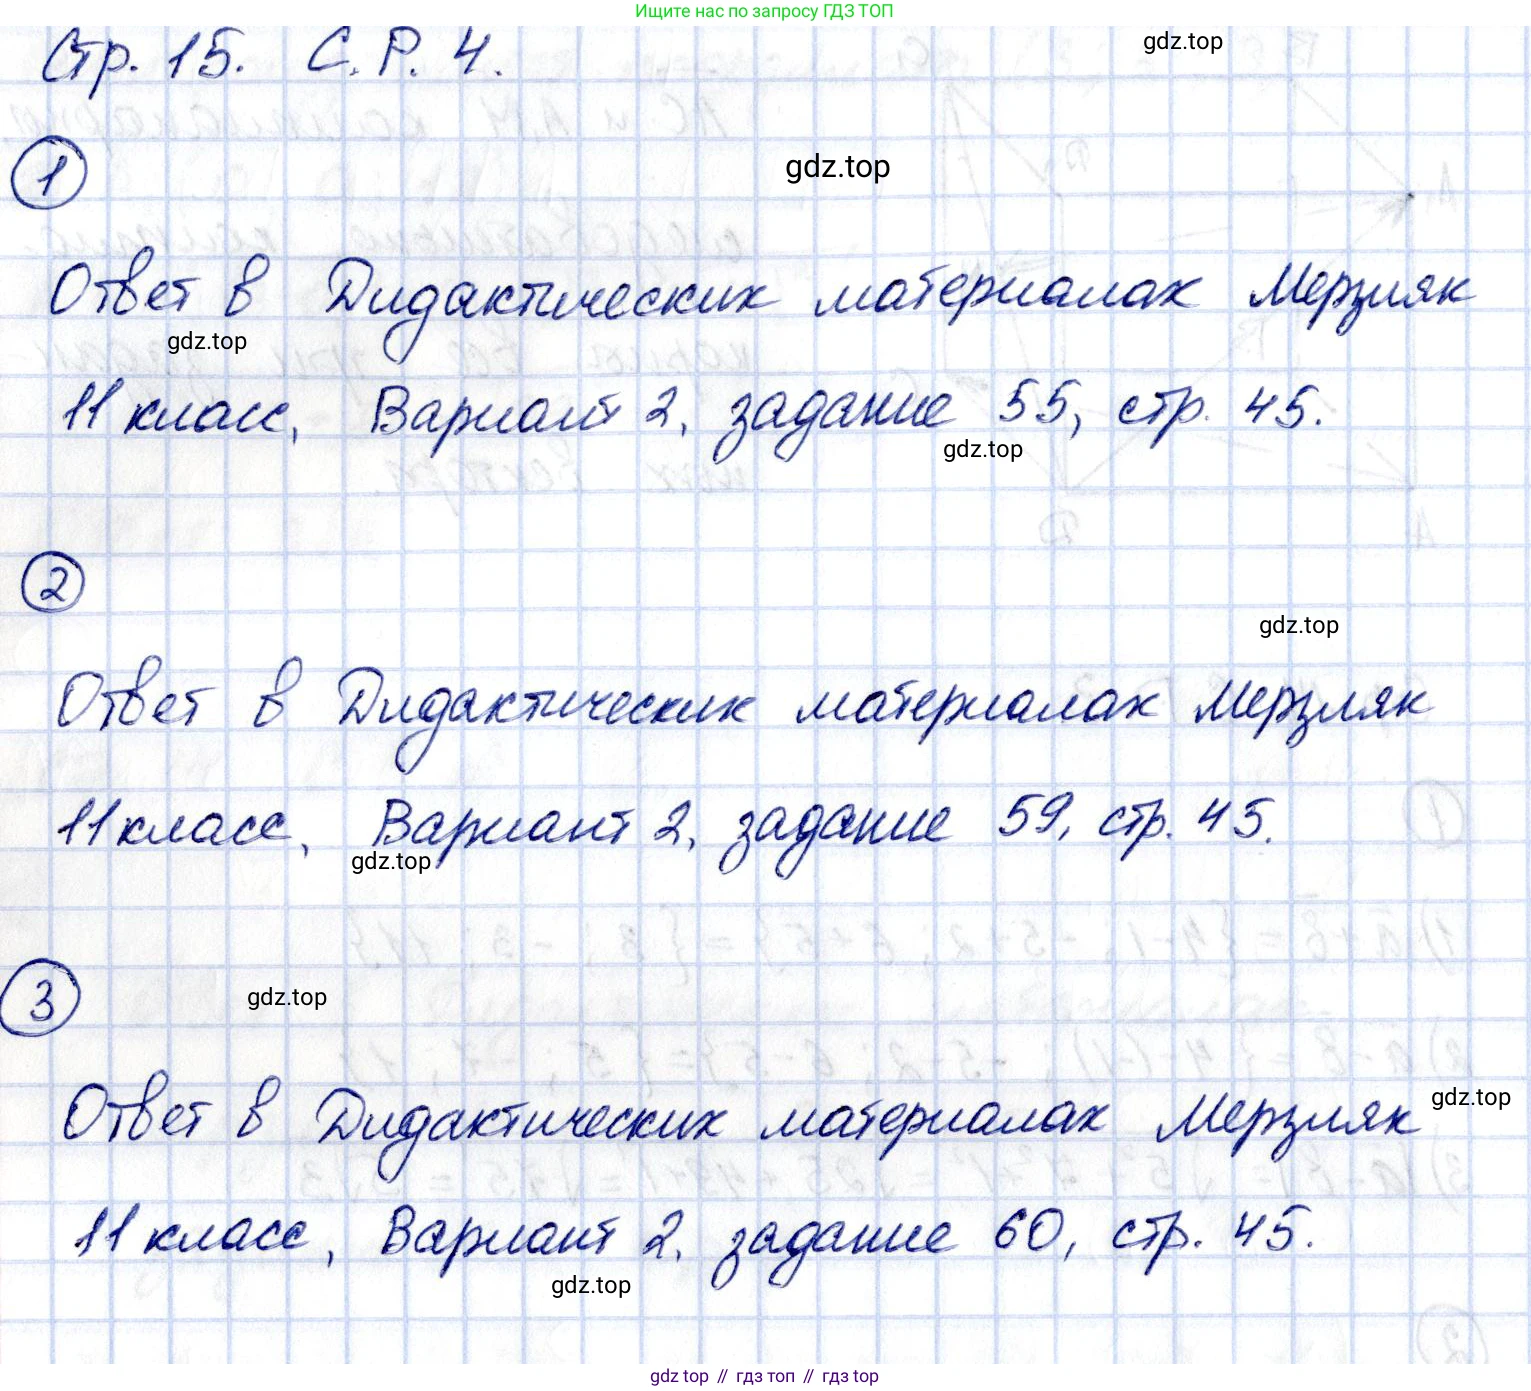 Ищите нас по запросу ГДЗ ТОП
Стр. 15. С. Р. 4.
gdz.top
1
gdz.top
Ответ в Дидактических материалах Мерзляк
gdz.top
11 класс, Вариант 2, задание 55, стр. 45.
gdz.top
2
gdz.top
Ответ в Дидактических материалах Мерзляк
11 класс, Вариант 2, задание 59, стр. 45.
gdz.top
3
gdz.top
Ответ в Дидактических материалах Мерзляк
gdz.top
11 класс, Вариант 2, задание 60, стр. 45.
gdz.top
gdz top // гдз топ // gdz top